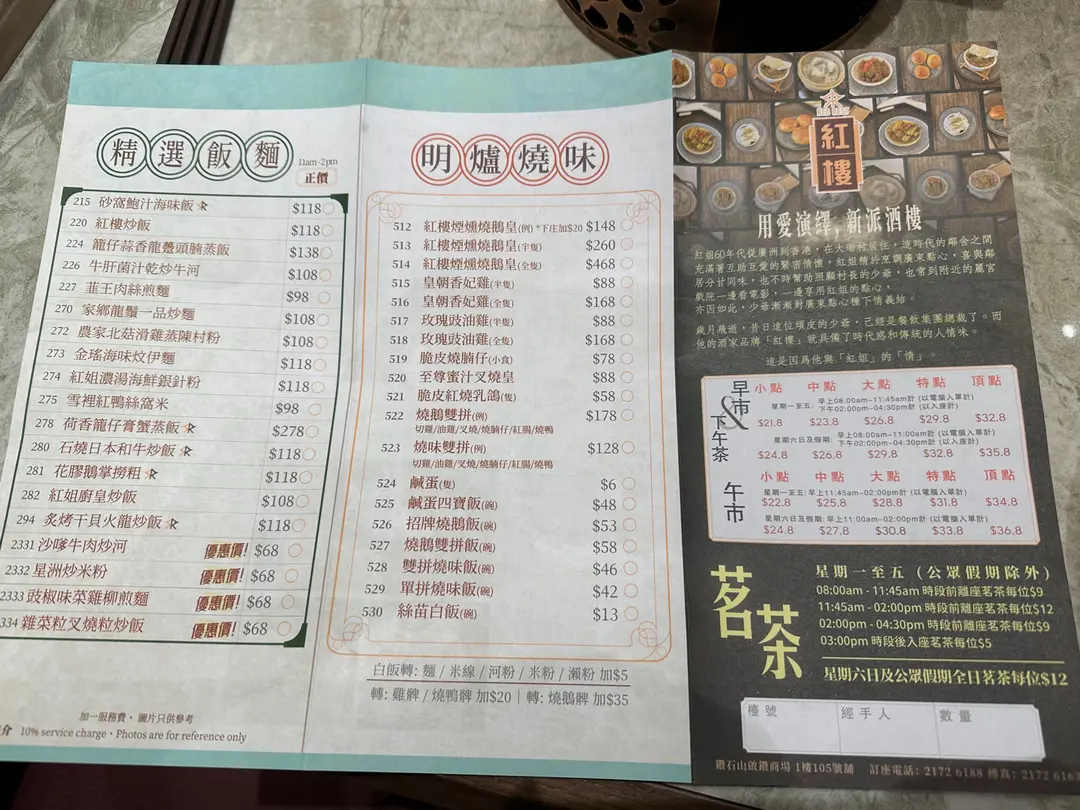 精選飯麵
11am-2pm
正價
215 砂窩鮑汁海味飯 $118
220 紅樓炒飯 $118
224 籠仔蒜香龍躉頭腩蒸飯 $138
226 牛肝菌汁乾炒牛河 $108
227 韮王肉絲煎麵 $98
270 家鄉龍鬚一品炒麵 $108
272 農家北菇滑雞蒸陳村粉 $108
273 金瑤海味炆伊麵 $118
274 紅姐濃湯海鮮銀針粉 $118
275 雪裡紅鴨絲窩米 $98
278 荷香龍仔膏蟹蒸飯 $278
280 石燒日本和牛炒飯 $118
281 花膠鵝掌撈粗 $118
282 紅姐廚皇炒飯 $108
294 炙烤干貝火龍炒飯 $118
2331 沙嗲牛肉炒河 優惠價! $68
2332 星洲炒米粉 優惠價! $68
2333 豉椒味菜雞柳煎麵 優惠價! $68
334 雜菜粒叉燒粒炒飯 優惠價! $68
加一服務費・圖片只供參考
介 10% service charge・Photos are for reference only
明爐燒味
512 紅樓煙燻燒鵝皇(例) *下庄加$20 $148
513 紅樓煙燻燒鵝皇(半隻) $260
514 紅樓煙燻燒鵝皇(全隻) $468
515 皇朝香妃雞(半隻) $88
516 皇朝香妃雞(全隻) $168
517 玫瑰豉油雞(半隻) $88
518 玫瑰豉油雞(全隻) $168
519 脆皮燒腩仔(小食) $78
520 至尊蜜汁叉燒皇 $88
521 脆皮紅燒乳鴿(隻) $58
522 燒鵝雙拼(例) $178
切雞/油雞/叉燒/燒腩仔/紅腸/燒鴨
523 燒味雙拼(例) $128
切雞/油雞/叉燒/燒腩仔/紅腸/燒鴨
524 鹹蛋(隻) $6
525 鹹蛋四寶飯(碗) $48
526 招牌燒鵝飯(碗) $53
527 燒鵝雙拼飯(碗) $58
528 雙拼燒味飯(碗) $46
529 單拼燒味飯(碗) $42
530 絲苗白飯(碗) $13
白飯轉: 麵 / 米線 / 河粉 / 米粉 / 瀨粉 加$5
轉: 雞髀 / 燒鴨髀 加$20 | 轉: 燒鵝髀 加$35
紅樓
用愛演繹, 新派酒樓
紅姐60年代從廣洲到香港，在大磡村居住，這時代的鄰舍之間
充滿著互助互愛的緊密情懷，紅姐精於烹調廣東點心，喜與鄰
居分甘同味，也不時幫助照顧村長的少爺，也常到附近的麗宮
戲院一邊看電影，一邊享用紅姐的點心，
亦因如此，少爺漸漸對廣東點心種下情義結。
歲月飛逝，昔日這位頑皮的少爺，已經是餐飲集團總裁了。而
他的酒家品牌「紅樓」就具備了時代感和傳統的人情味。
這是因爲他與「紅姐」的「情」。
早市&下午茶
小點 中點 大點 特點 頂點
星期一至五: 早上08:00am-11:45am計 (以電腦入單計)
下午02:00pm-04:30pm計 (以入座計)
$21.8 $23.8 $26.8 $29.8 $32.8
星期六日及假期: 早上08:00am-11:00am計 (以電腦入單計)
下午02:00pm-04:30pm計 (以入座計)
$24.8 $26.8 $29.8 $32.8 $35.8
午市
小點 中點 大點 特點 頂點
星期一至五: 早上11:45am-02:00pm計 (以電腦入單計)
$22.8 $25.8 $28.8 $31.8 $34.8
星期六日及假期: 早上11:00am-02:00pm計 (以電腦入單計)
$24.8 $27.8 $30.8 $33.8 $36.8
茗茶
星期一至五 (公眾假期除外)
08:00am - 11:45am 時段前離座茗茶每位$9
11:45am - 02:00pm 時段前離座茗茶每位$12
02:00pm - 04:30pm 時段前離座茗茶每位$9
03:00pm 時段後入座茗茶每位$5
星期六日及公眾假期全日茗茶每位$12
檯號 經手人 數量
鑽石山啟鑽商場 1樓105號舖 訂座電話: 2172 6188 傳真: 2172 6163